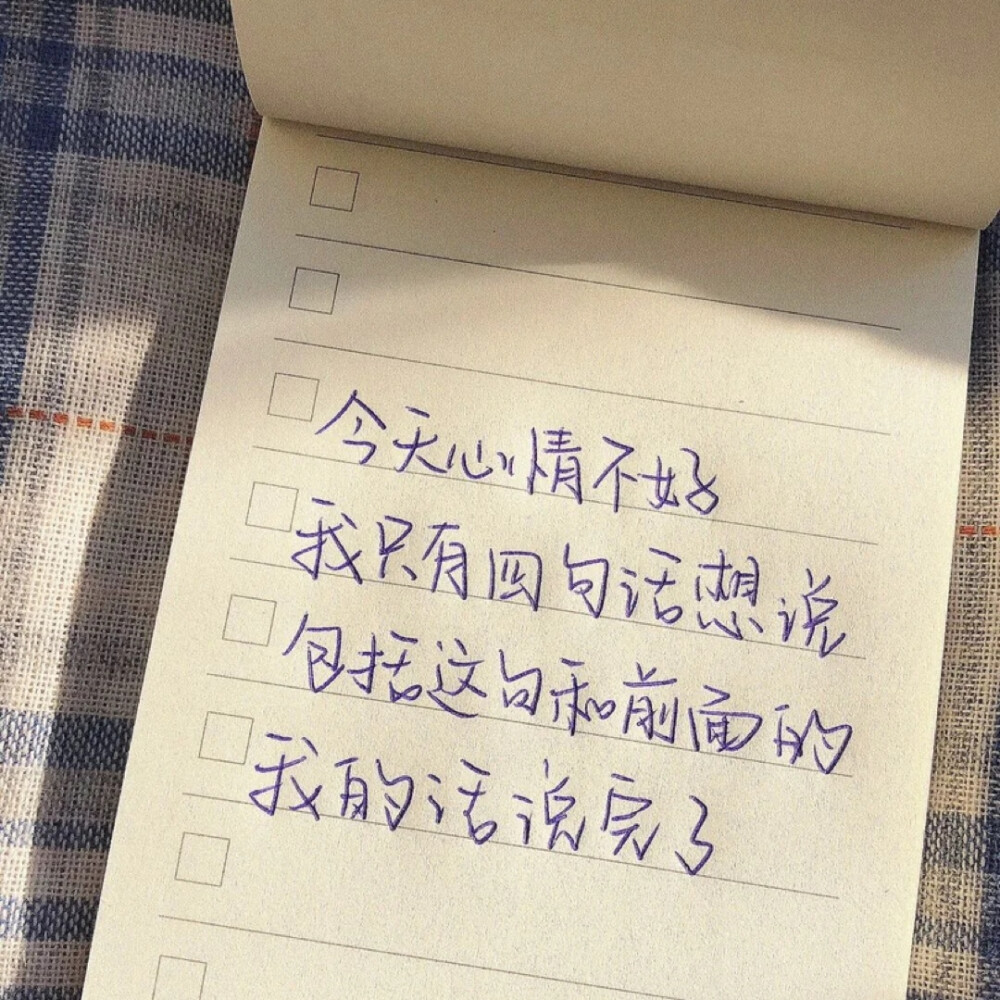 今天心情不好
我只有四句话想说
包括这句和前面的
我的话说完了